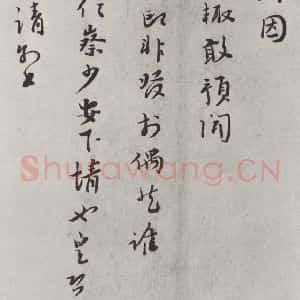 因
輙敢預聞
非發於偶然誰
察少安下情也皇恐
請
Shufawang.CN